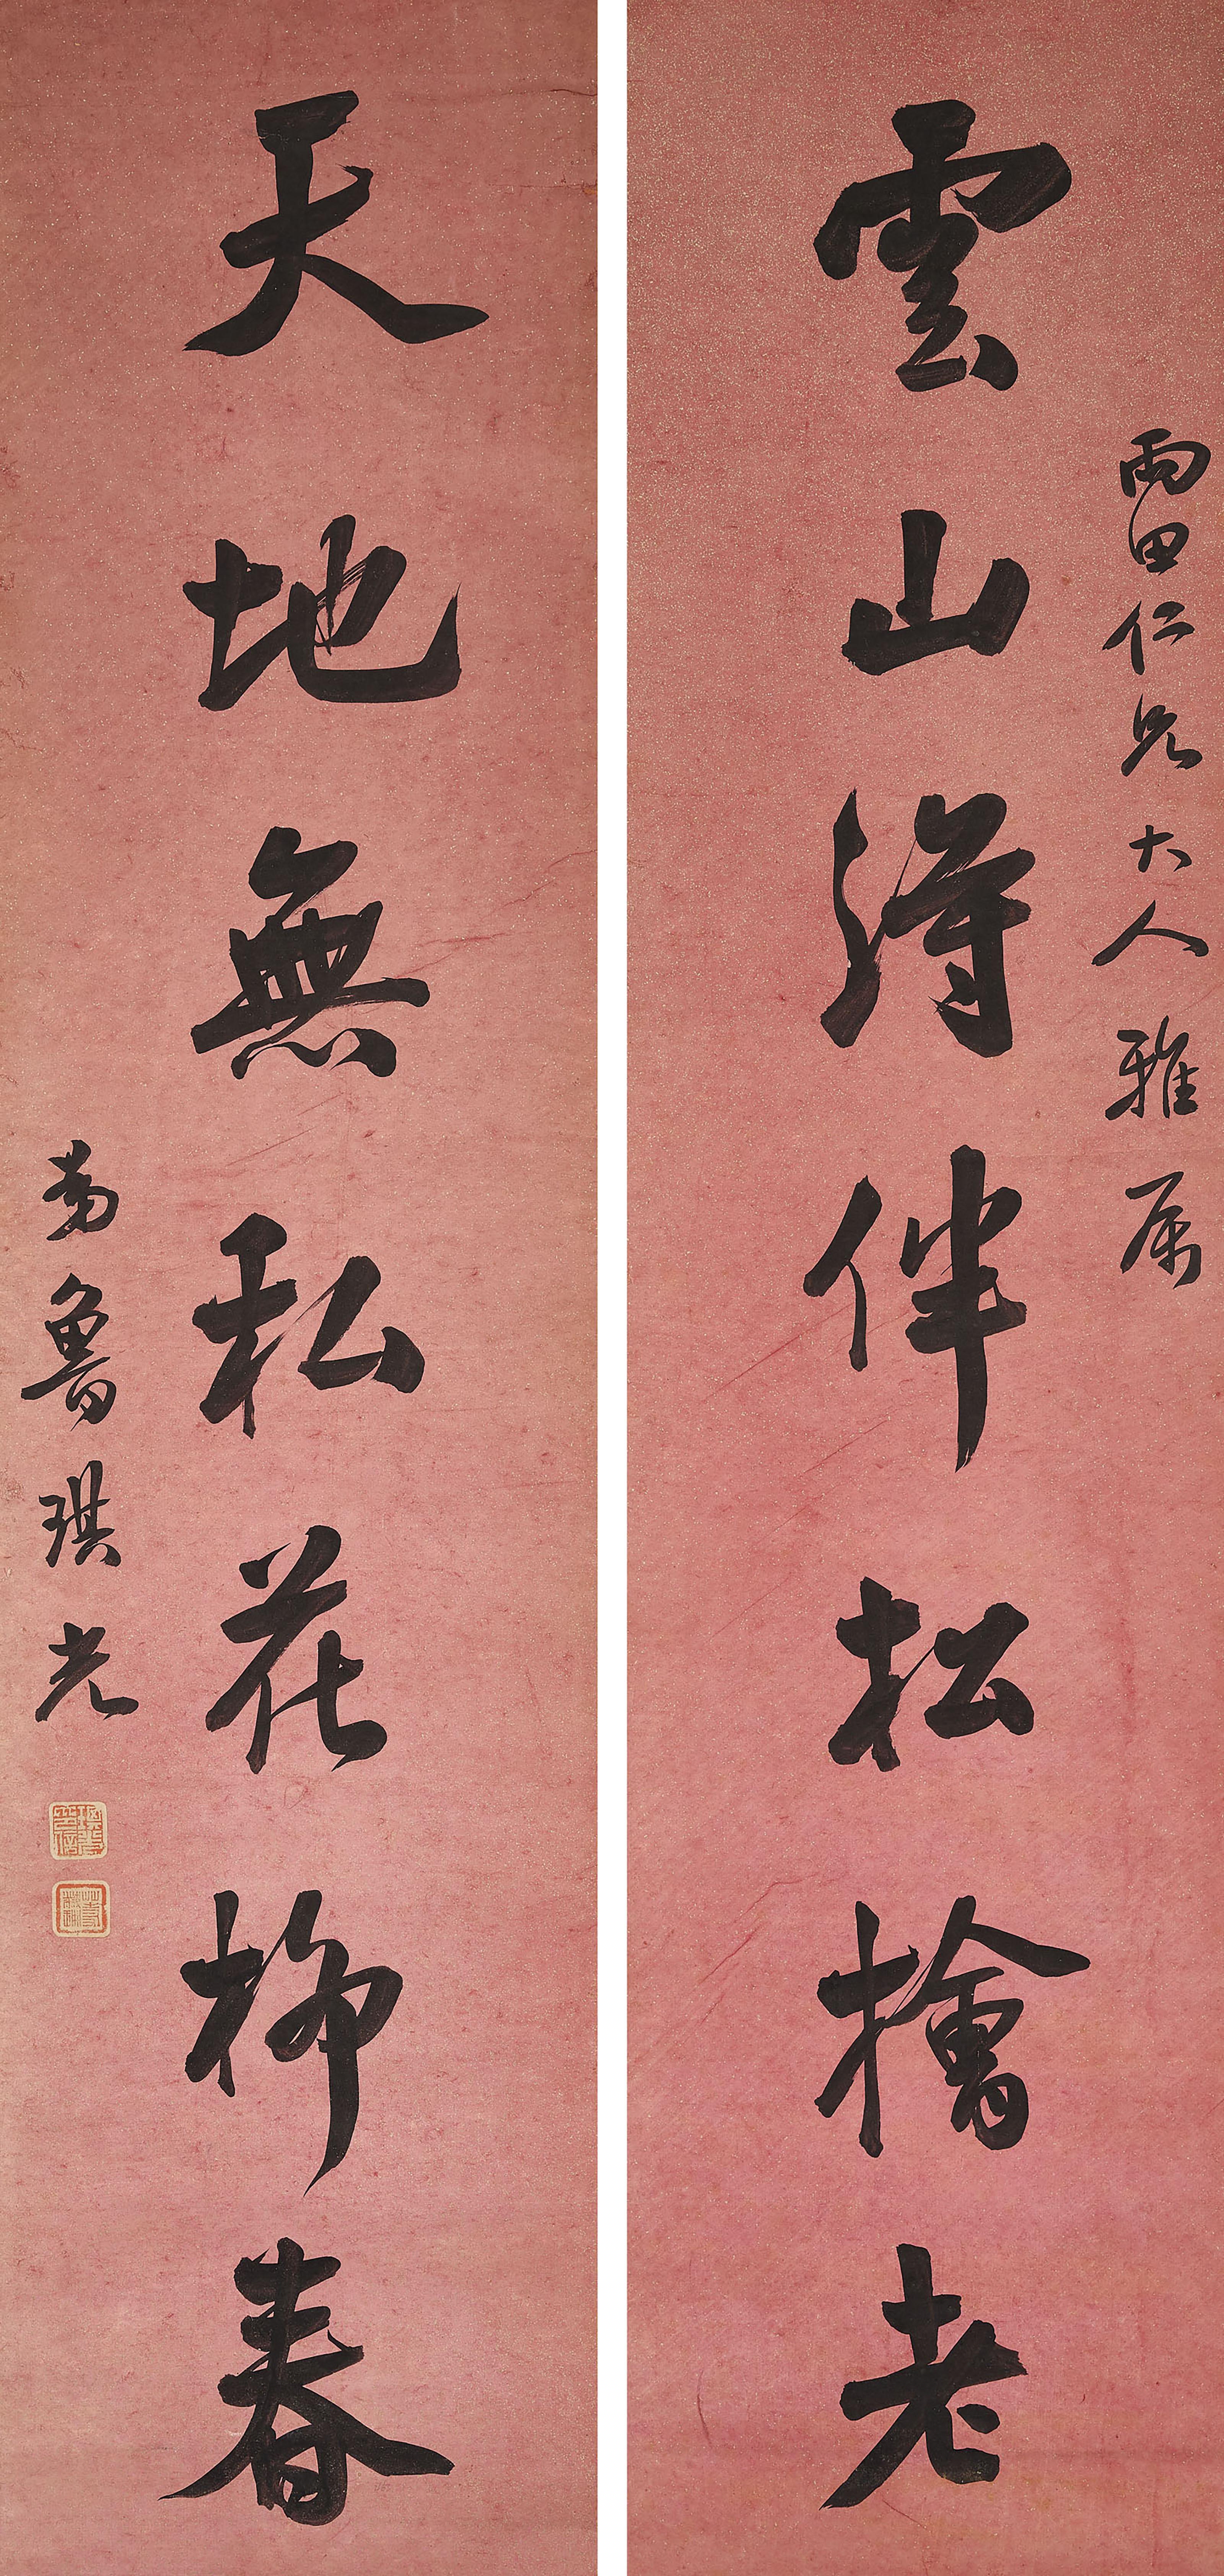 雨田仁兄大人雅属
雲山得伴松檜老
天地無私花柳春
弟魯琪光